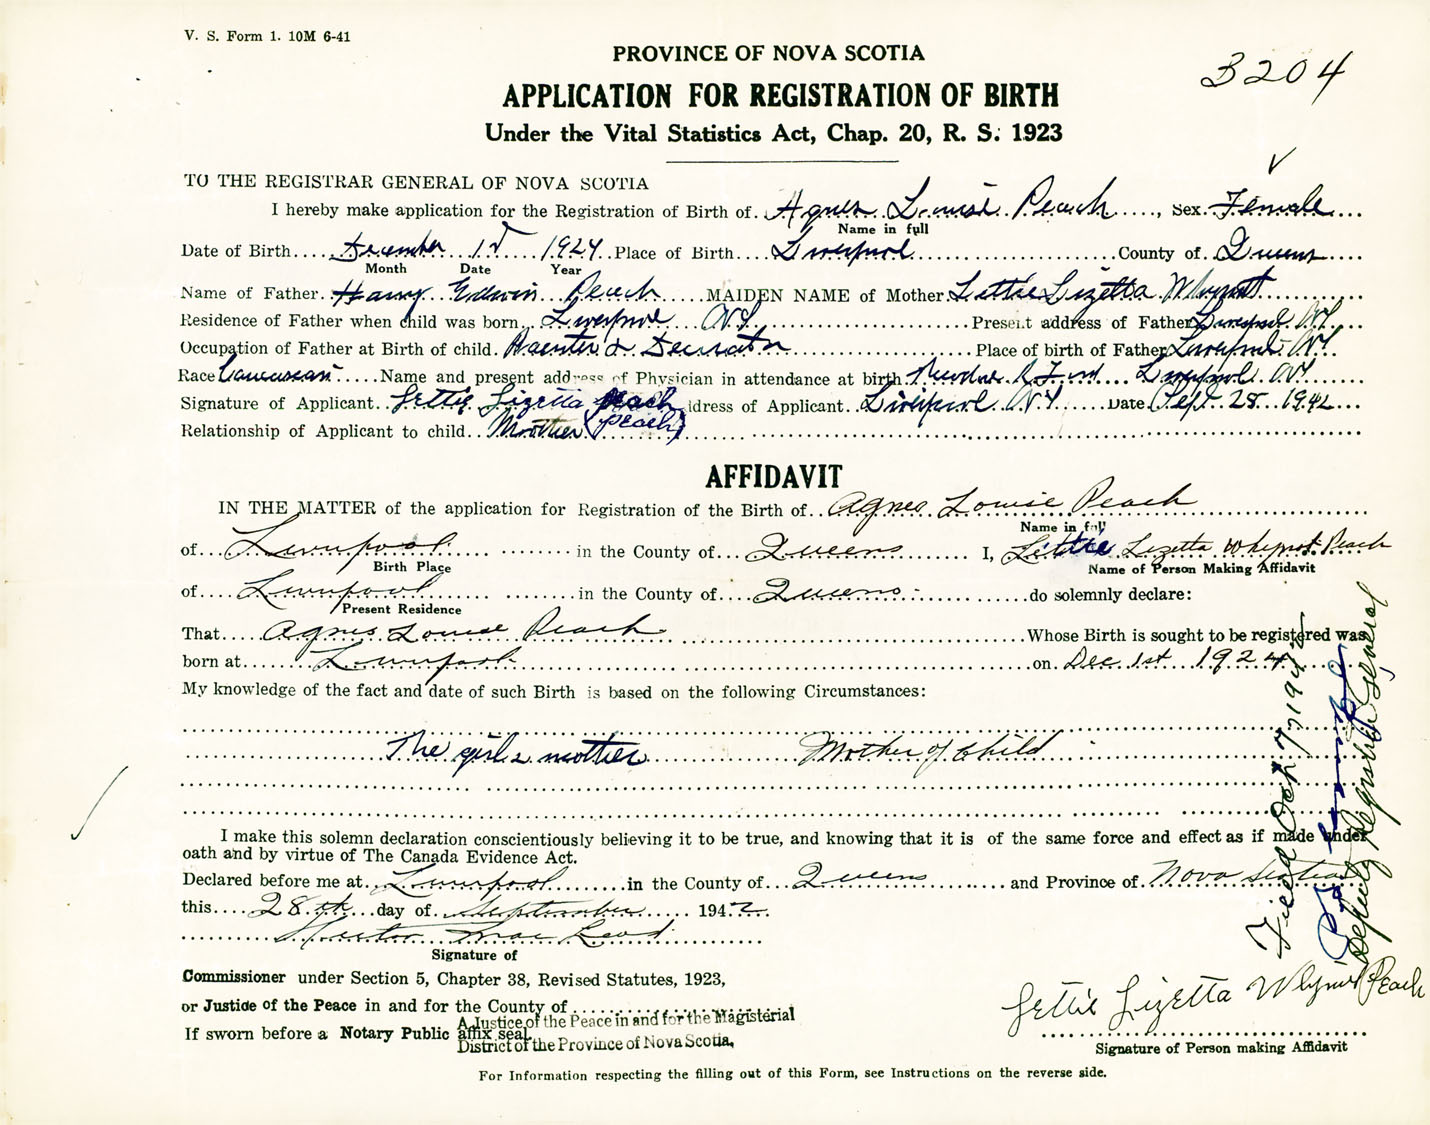 V. S. Form 1. 10M 6-41
PROVINCE OF NOVA SCOTIA
3204
APPLICATION FOR REGISTRATION OF BIRTH
Under the Vital Statistics Act, Chap. 20, R. S. 1923
TO THE REGISTRAR GENERAL OF NOVA SCOTIA
I hereby make application for the Registration of Birth of Agnes Louise Peach, Sex Female
Name in full
Date of Birth December 1st 1924 Place of Birth Liverpool County of Queens
Month Date Year
Name of Father Harry Edwin Peach MAIDEN NAME of Mother Lettie Lizetta Whynot
Residence of Father when child was born Liverpool N.S. Present address of Father Liverpool N.S.
Occupation of Father at Birth of child Painter & Decorator Place of birth of Father Liverpool N.S.
Race Caucasean Name and present address of Physician in attendance at birth Theodore R Ford Liverpool N.S.
Signature of Applicant Lettie Lizetta Peach Address of Applicant Liverpool N.S. Date Sept 28 1942
Relationship of Applicant to child Mother (Peach)
AFFIDAVIT
IN THE MATTER of the application for Registration of the Birth of Agnes Louise Peach
Name in full
of Liverpool in the County of Queens I, Lettie Lizetta Whynot Peach
Birth Place Name of Person Making Affidavit
of Liverpool in the County of Queens do solemnly declare:
Present Residence
That Agnes Louise Peach Whose Birth is sought to be registered was
born at Liverpool on Dec. 1st 1924
My knowledge of the fact and date of such Birth is based on the following Circumstances:
The girls mother Mother of Child
I make this solemn declaration conscientiously believing it to be true, and knowing that it is of the same force and effect as if made under
oath and by virtue of The Canada Evidence Act.
Declared before me at Liverpool in the County of Queens and Province of Nova Scotia
this 28th day of September 1942
Hector MacLeod
Signature of
Commissioner under Section 5, Chapter 38, Revised Statutes, 1923,
or Justice of the Peace in and for the County of
A Justice of the Peace in and for the Magisterial
If sworn before a Notary Public affix seal.
District of the Province of Nova Scotia.
Lettie Lizetta Whynot Peach
Signature of Person making Affidavit
For Information respecting the filling out of this Form, see Instructions on the reverse side.
Filed Oct 7 1942
Deputy Registrar General